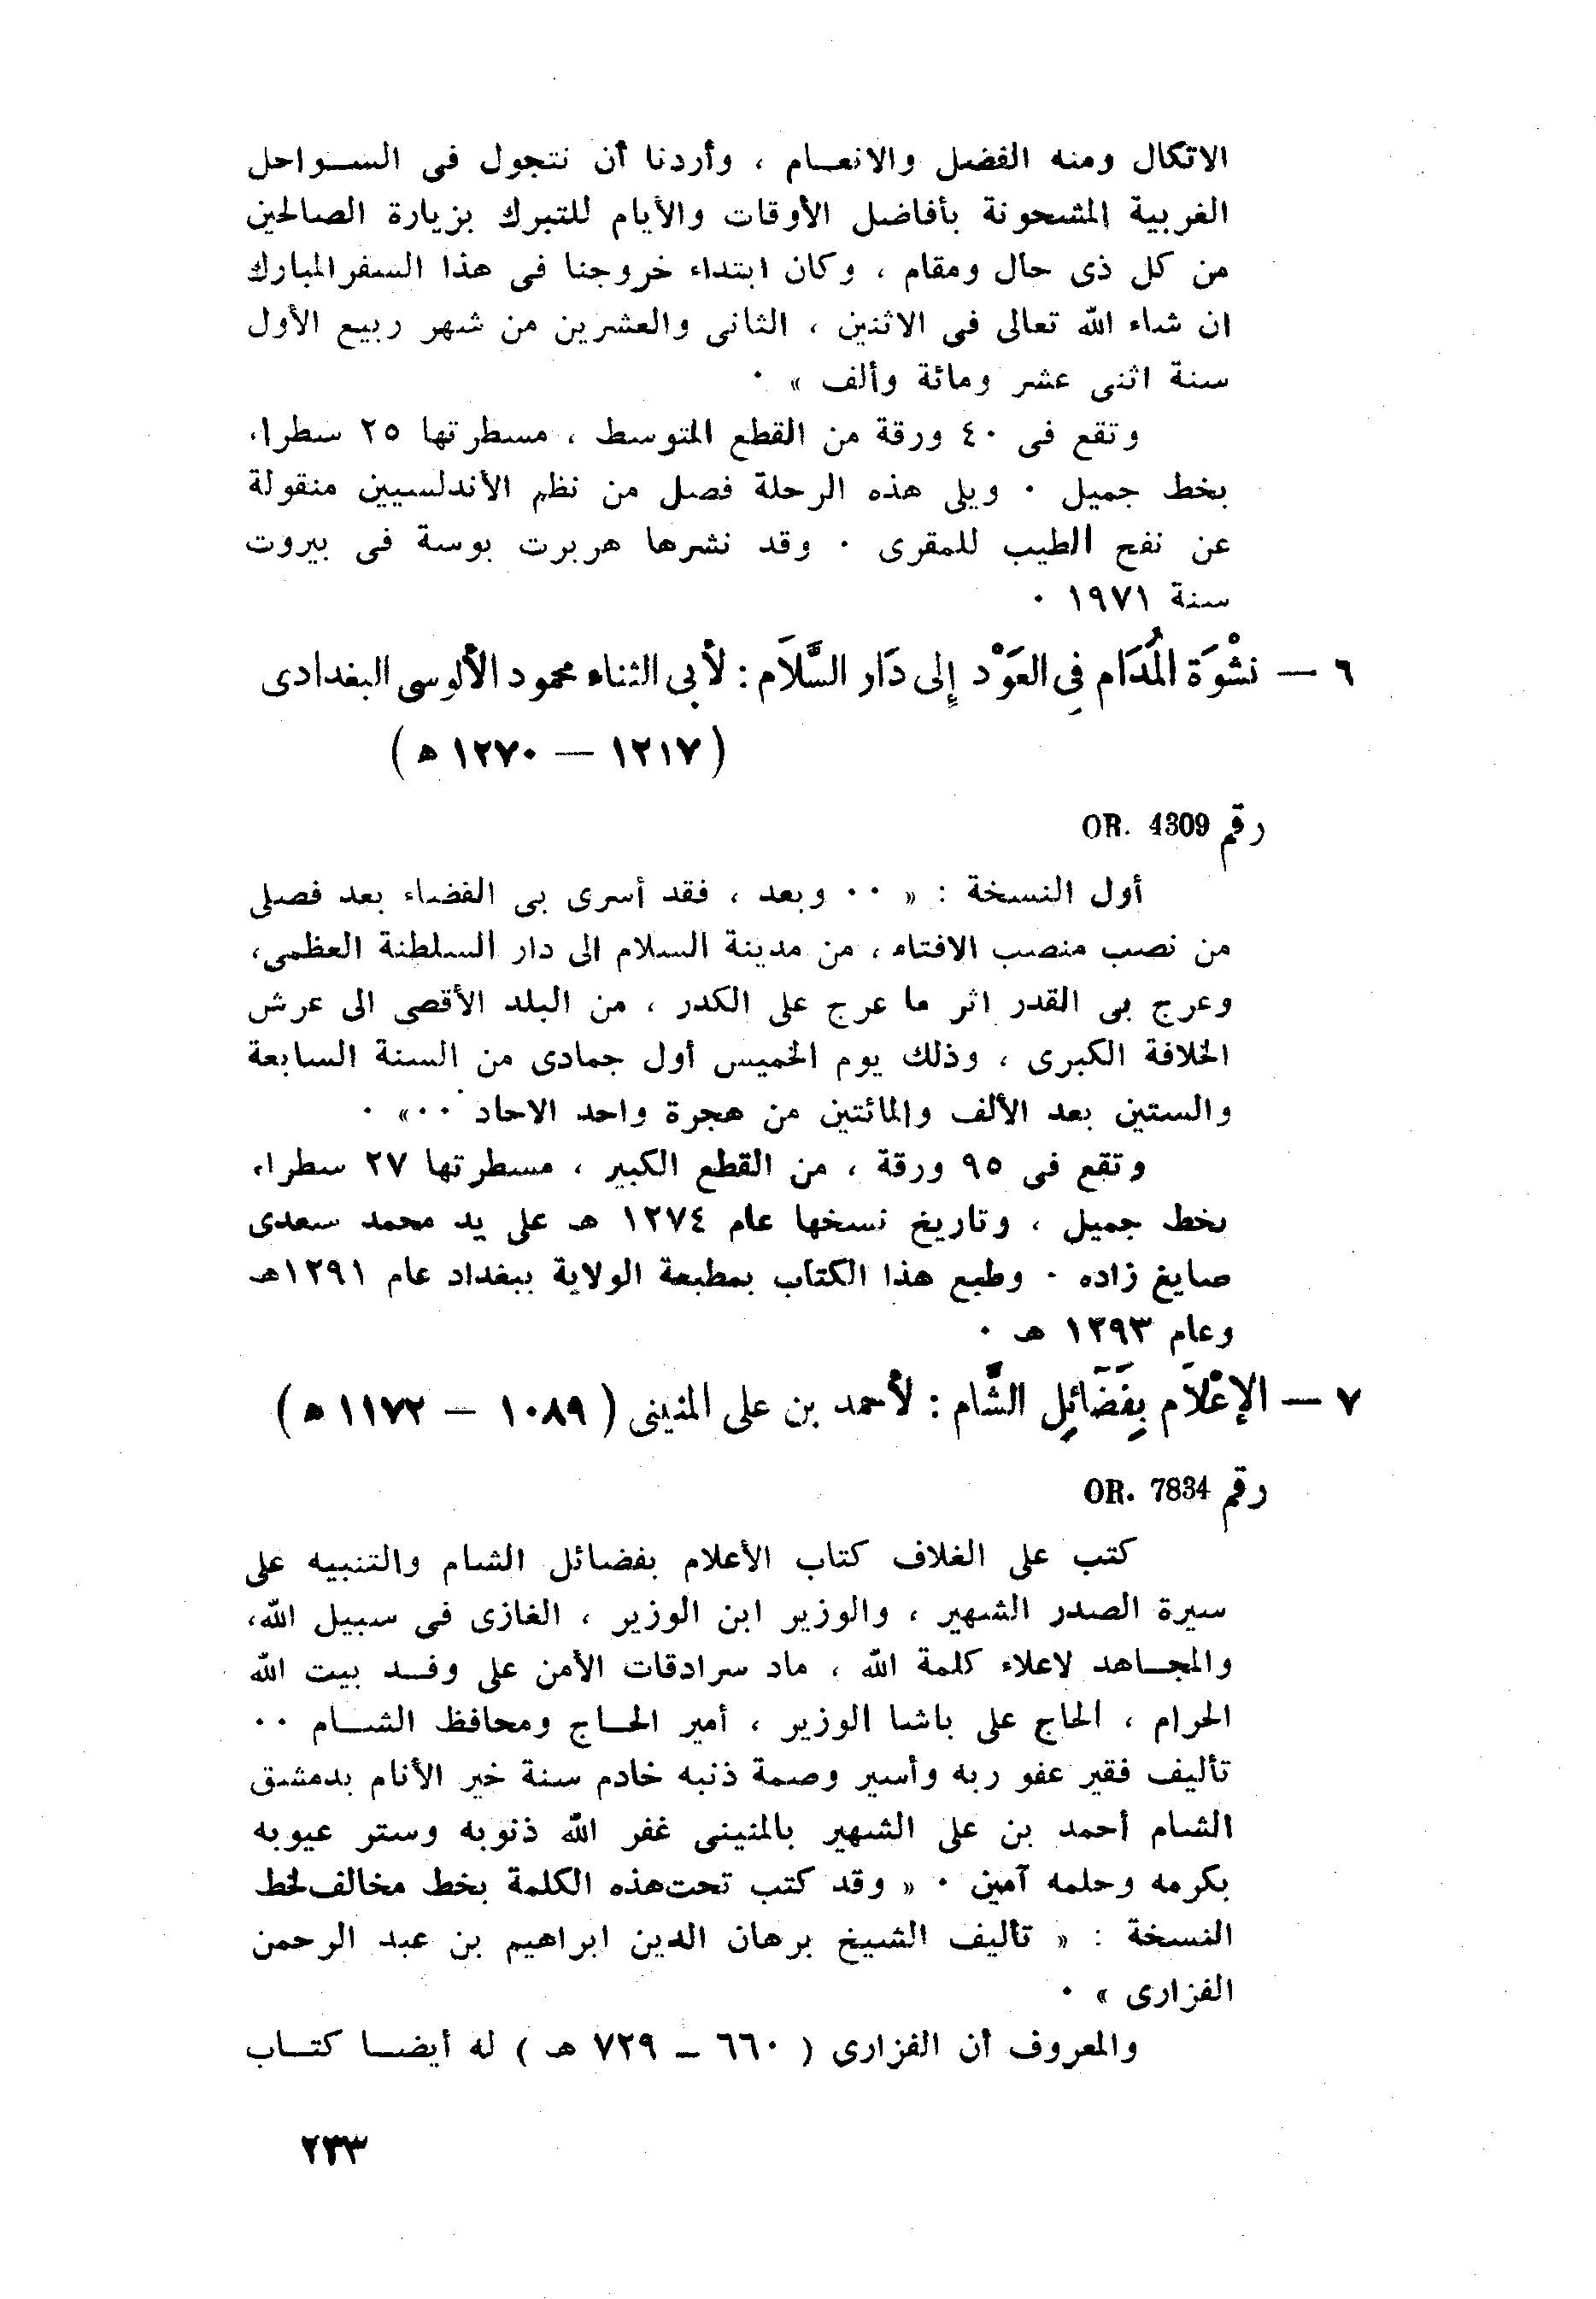 الاتكال ومنه الفضل والانعام ، وأردنا أن نتجول فى السواحل
الغربية المشحونة بأفاضل الأوقات والأيام للتبرك بزيارة الصالحين
من كل ذى حال ومقام ، وكان ابتداء خروجنا فى هذا السفر المبارك
ان شاء الله تعالى فى الاثنين ، الثانى والعشرين من شهر ربيع الأول
سنة اثنى عشر ومائة وألف » ٠
وتقع فى ٤٠ ورقة من القطع المتوسط ، مسطرتها ٢٥ سطرا،
بخط جميل ٠ ويلى هذه الرحلة فصل من نظم الأندلسيين منقولة
عن نفح الطيب للمقرى ٠ وقد نشرها هربرت بوسة فى بيروت
سنة ١٩٧١ ٠
٦ — نشْوَة المُدَام فِى العَوْد إِلى دَار السَّلاَم : لأبى الثناء محمود الألوسى البغدادى
( ١٢١٧ — ١٢٧٠ ه )
رقم OR. 4309
أول النسخة : « ٠٠ وبعد ، فقد أسرى بى الفضاء بعد فصلى
من نصب منصب الافتاء ، من مدينة السلام الى دار السلطنة العظمى،
وعرج بى القدر اثر ما عرج على الكدر ، من البلد الأقصى الى عرش
الخلافة الكبرى ، وذلك يوم الخميس أول جمادى من السنة السابعة
والستين بعد الألف والمائتين من هجرة واحد الاحاد ٠٠» ٠
وتقع فى ٩٥ ورقة ، من القطع الكبير ، مسطرتها ٢٧ سطرا،
بخط جميل ، وتاريخ نسخها عام ١٢٧٤ هـ على يد محمد سعدى
صايغ زاده ٠ وطبع هذا الكتاب بمطبعة الولاية ببغداد عام ١٢٩١هـ
وعام ١٢٩٣ هـ ٠
٧ — الإعْلاَم بِفَضَائِل الشَّام : لأحمد بن على المنينى ( ١٠٨٩ — ١١٧٢ ه )
رقم OR. 7834
كتب على الغلاف كتاب الأعلام بفضائل الشام والتنبيه على
سيرة الصدر الشهير ، والوزير ابن الوزير ، الغازى فى سبيل الله،
والمجاهد لاعلاء كلمة الله ، ماد سرادقات الأمن على وفد بيت الله
الحرام ، الحاج على باشا الوزير ، أمير الحاج ومحافظ الشام ٠٠
تأليف فقير عفو ربه وأسير وصمة ذنبه خادم سنة خير الأنام بدمشق
الشام أحمد بن على الشهير بالمنينى غفر الله ذنوبه وستر عيوبه
بكرمه وحلمه آمين ٠ « وقد كتب تحت هذه الكلمة بخط مخالف لخط
النسخة : « تأليف الشيخ برهان الدين ابراهيم بن عبد الرحمن
الفزارى » ٠
والمعروف أن الفزارى ( ٦٦٠ – ٧٢٩ هـ ) له أيضا كتاب
٢٣٣